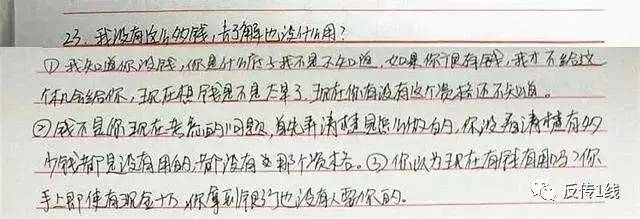 23、我没有这么多钱,去了解也没什么用?
①我知道你没钱,你是什么底子我不是不知道,如果你很有钱,我才不给这
个机会给你,现在想钱是不是太早了,现在你有没有这个资格还不知道。
②钱不是你现在考虑的问题,首先弄清楚是怎么做的,你没看清楚有多
少钱都是没有用的,都没有这那个资格。③你以为现在有钱有用吗?你
手上即使有现金十万,你拿到银行也没有人要你的。
反传1线